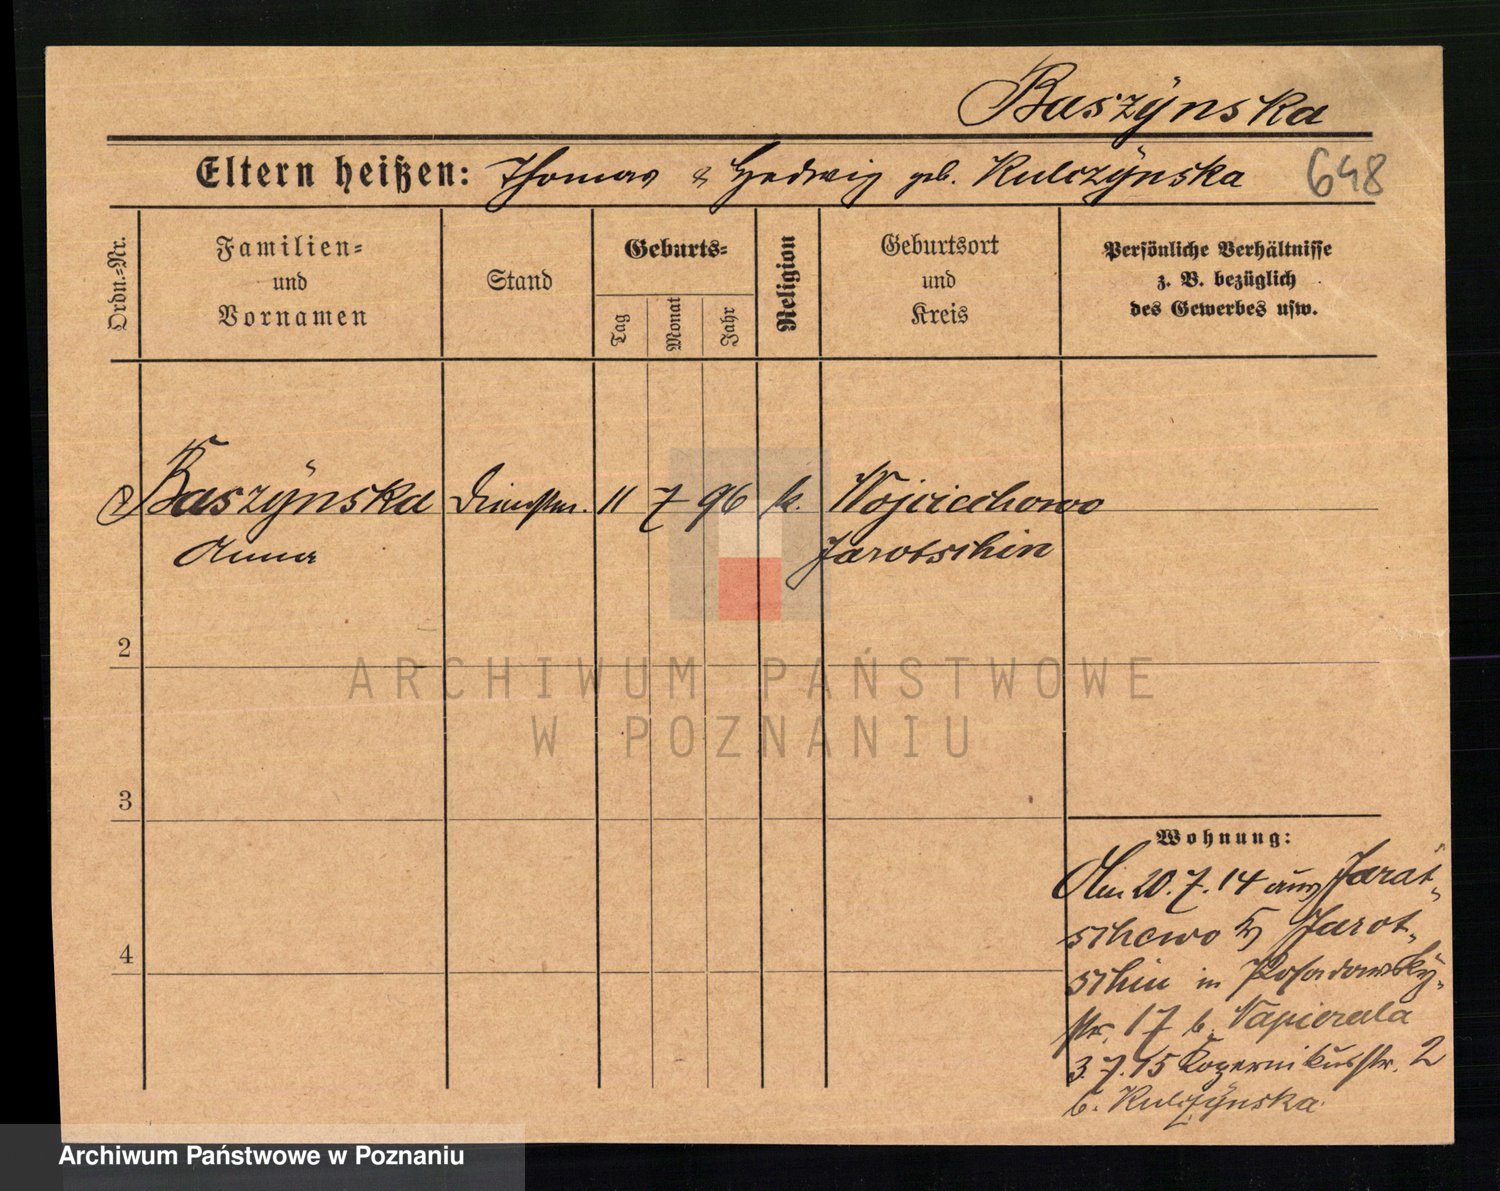 Baszÿnska
Eltern heißen: Thomas & Hedwig geb. Kulczÿnska 648
Ordn.=Nr.
Familien=
und
Vornamen
Stand
Geburts=
Tag
Monat
Jahr
Religion
Geburtsort
und
Kreis
Persönliche Verhältnisse
z. B. bezüglich
des Gewerbes usw.
Baszÿnska Dienstm. 11 7 96 k. Wojciechowo
Anna Jarotschin
2
3
4
Wohnung:
Am 20.7.14 aus Jarat-
schewo Kr Jarot-
schin in Posadowsky-
str. 17 b. Napierala
3.7.15 Kopernikusstr. 2
b. Kulczÿnska.
ARCHIWUM PAŃSTWOWE
W POZNANIU
Archiwum Państwowe w Poznaniu